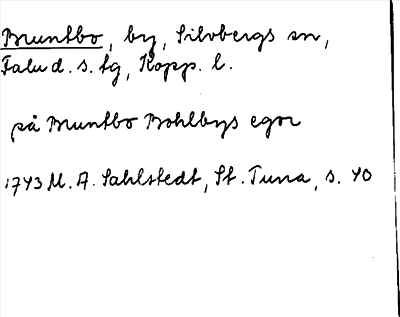 Bruntbo, by, Silvbergs sn,
Falu d. s. tg, Kopp. l.
på Bruntbo Bohlbys egor
1743 M. A. Sahlstedt, St. Tuna, s. 40